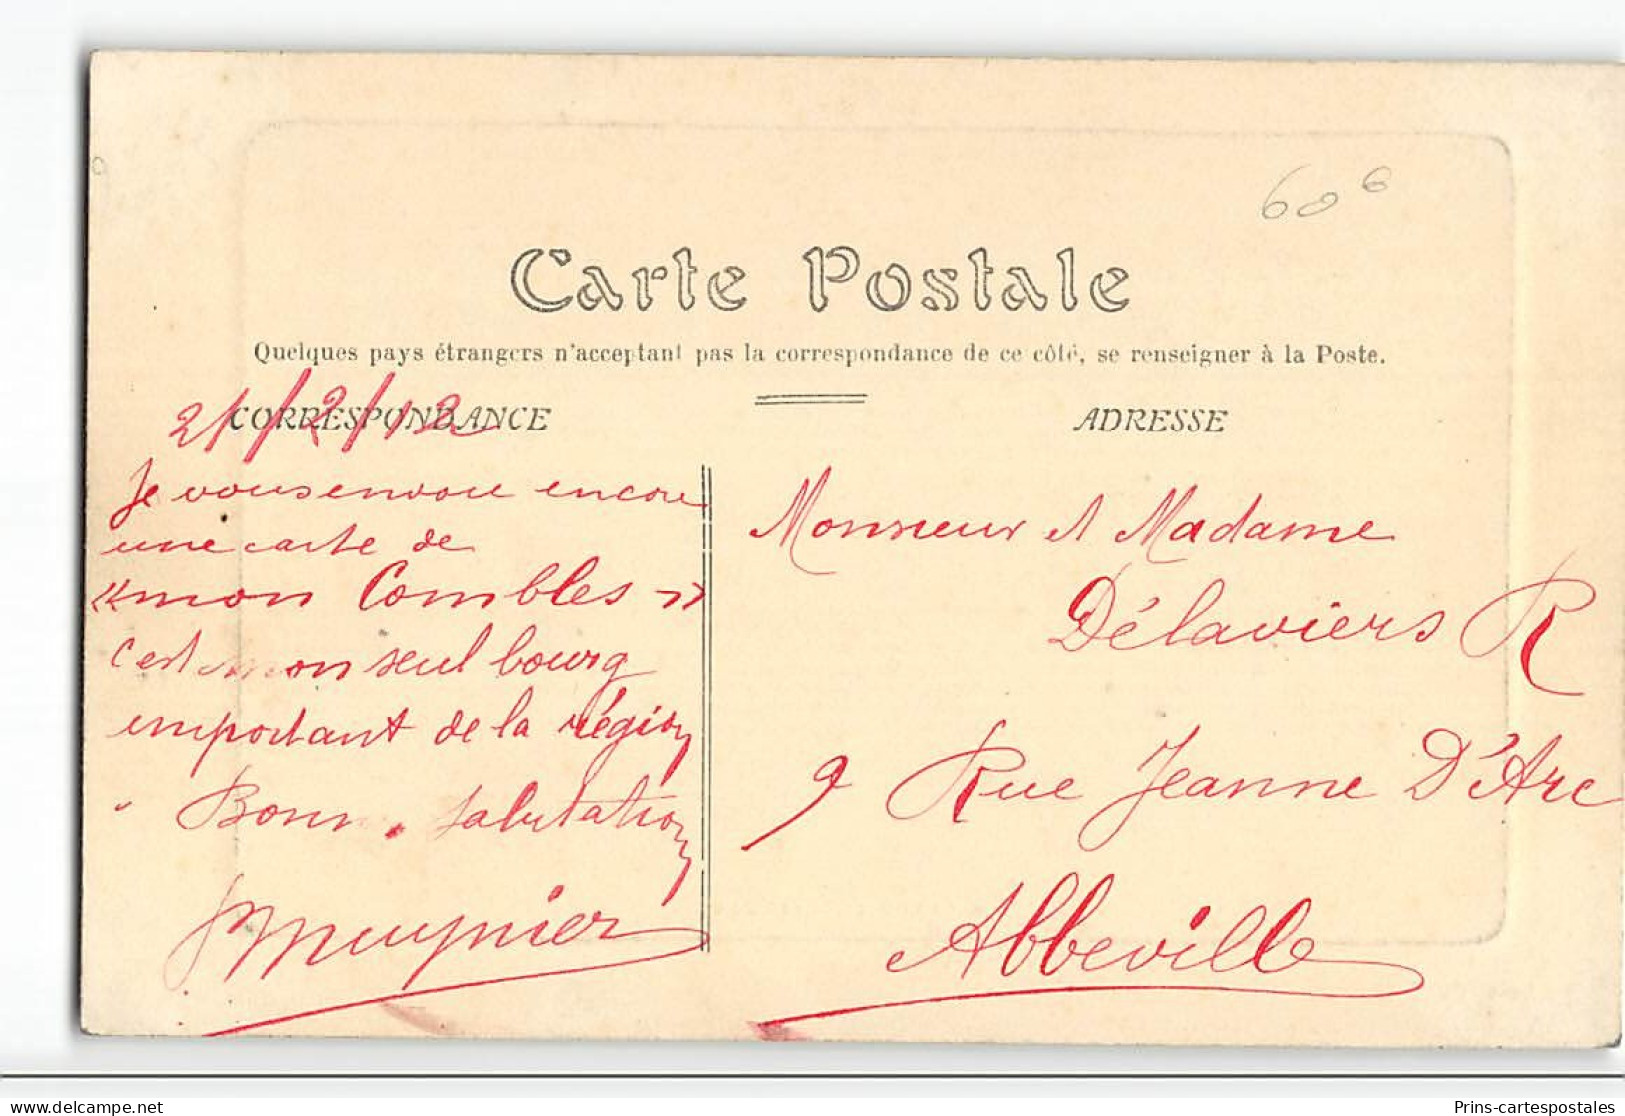 60 6
Carte Postale
Quelques pays étrangers n'acceptant pas la correspondance de ce côté, se renseigner à la Poste.
CORRESPONDANCE
ADRESSE
21/2/12
Je vous envoie encore
une carte de
«mon Combles»
c'est mon seul bourg
important de la région
Bonne salutation
Monsieur et Madame
Délaviers R
9 Rue Jeanne D'Arc
Abbeville
delcampe.net
Prins-cartespostales